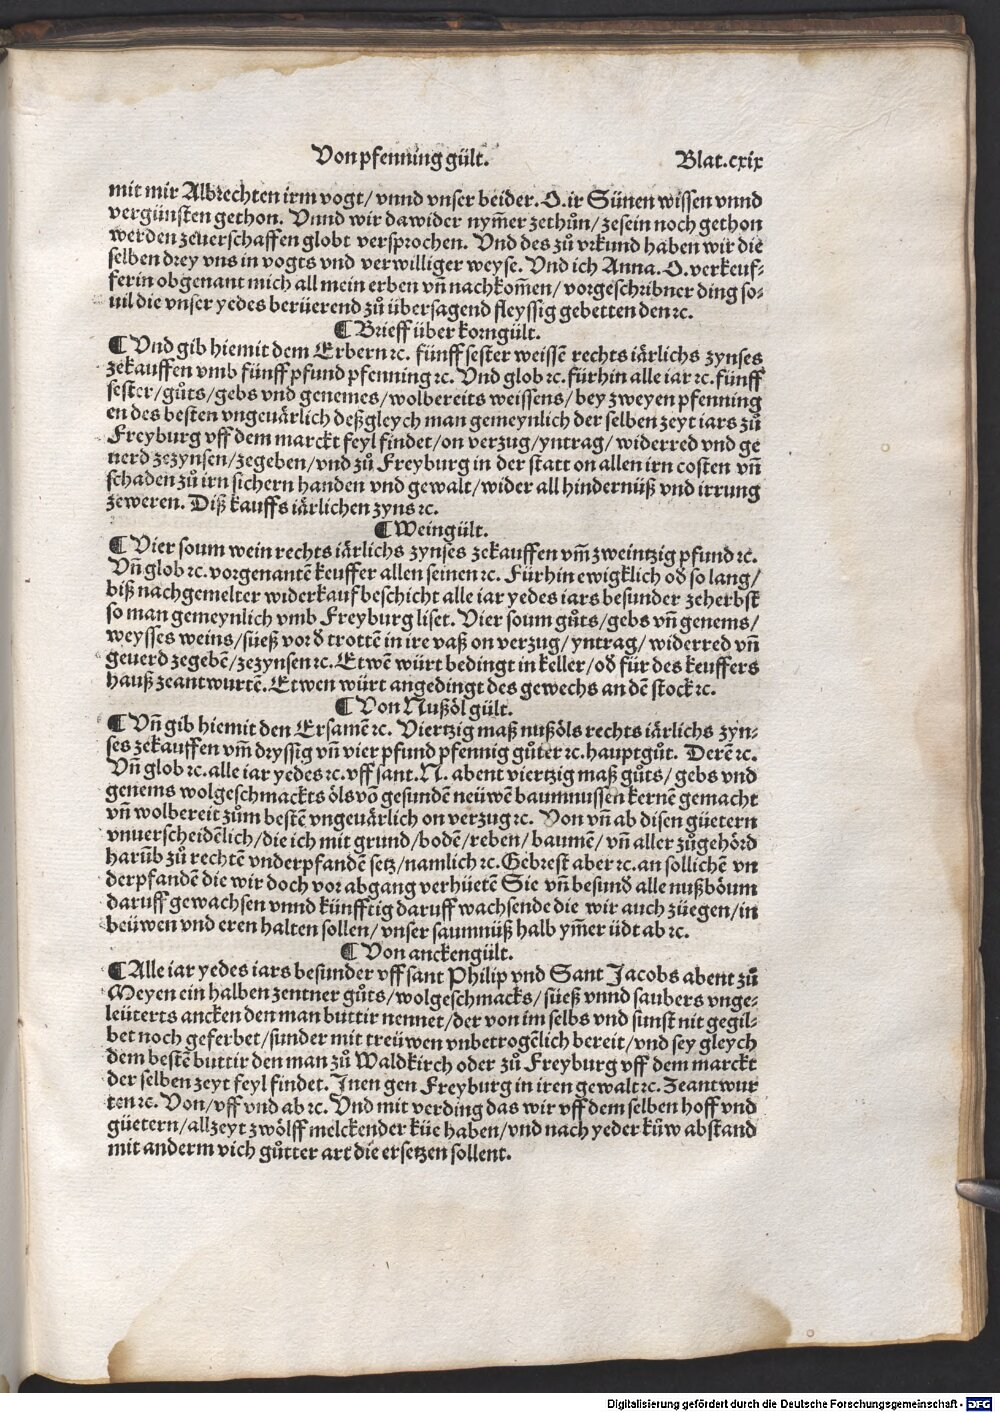 Von pfenning gült. Blat.cxix
mit mir Albrechten irm vogt/ vnnd vnser beider. O. ir Sünen wissen vnnd
vergünsten gethon. Vnnd wir dawider nym̄er zethůn/ zesein noch gethon
werden zeuerschaffen globt versprochen. Vnd des zů vrkund haben wir die
selben drey vns in vogts vnd verwilliger weyse. Vnd ich Anna. O. verkeuf⸗
ferin obgenant mich all mein erben vn̄ nachkom̄en/ vorgeschribner ding so⸗
uil die vnser yedes berüerend zů übersagend fleyssig gebetten den ⁊c.
¶ Brieff über korngült.
¶ Vnd gib hiemit dem Erbern ⁊c. fünff sester weissē rechts iärlichs zynses
zekauffen vmb fünff pfund pfenning ⁊c. Vnd glob ⁊c. fürhin alle iar ⁊c. fünff
sester/ gůts/ gebs vnd genemes/ wolbereits weissens/ bey zweyen pfenning
en des besten vngeuärlich deßgleych man gemeynlich der selben zeyt iars zů
Freyburg vff dem marckt feyl findet/ on verzug/ yntrag/ widerred vnd ge
uerd zezynsen/ zegeben/ vnd zů Freyburg in der statt on allen irn costen vn̄
schaden zů irn sichern handen vnd gewalt/ wider all hindernüß vnd irrung
zeweren. Diß kauffs iärlichen zyns ⁊c.
¶ Weingült.
¶ Vier soum wein rechts iärlichs zynses zekauffen vm̄ zweintzig pfund ⁊c.
Vn̄ glob ⁊c. vorgenantē keuffer allen seinen ⁊c. Fürhin ewigklich od̄ so lang/
biß nachgemelter widerkauf beschicht alle iar yedes iars besunder zeherbst
so man gemeynlich vmb Freyburg liset. Vier soum gůts/ gebs vn̄ genems/
weysses weins/ süeß vor d̄ trottē in ire vaß on verzug/ yntrag/ widerred vn̄
geuerd zegebē/ zezynsen ⁊c. Etwē würt bedingt in keller/ od̄ für des keuffers
hauß zeantwurtē. Etwen würt angedingt des gewechs an dē stock ⁊c.
¶ Von Nußöl gült.
¶ Vn̄ gib hiemit den Ersamē ⁊c. Viertzig maß nußöls rechts iärlichs zyn⸗
ses zekauffen vm̄ dryssig vn̄ vier pfund pfennig gůter ⁊c. hauptgůt. Derē ⁊c.
Vn̄ glob ⁊c. alle iar yedes ⁊c. vff sant. N. abent viertzig maß gůts/ gebs vnd
genems wolgeschmackts öls vō gesundē neüwē baumnussen kernē gemacht
vn̄ wolbereit zům bestē vngeuärlich on verzug ⁊c. Von vn̄ ab disen güetern
vnuerscheidēlich/ die ich mit grund/ bodē/ reben/ baumē/ vn̄ aller zůgehörd
harūb zů rechtē vnderpfandē setz/ namlich ⁊c. Gebrest aber ⁊c. an sollichē vn
derpfandē die wir doch vor abgang verhüetē Sie vn̄ besund̄ alle nußböum
daruff gewachsen vnnd künfftig daruff wachsende die wir auch züegen/ in
beüwen vnd eren halten sollen/ vnser saumnüß halb ym̄er üdt ab ⁊c.
¶ Von anckengült.
¶ Alle iar yedes iars besunder vff sant Philip vnd Sant Jacobs abent zů
Meyen ein halben zentner gůts/ wolgeschmacks/ süeß vnnd saubers vnge⸗
leüterts ancken den man buttir nennet/ der von im selbs vnd sunst nit gegil⸗
bet noch geferbet/ sunder mit treüwen vnbetrogēlich bereit/ vnd sey gleych
dem bestē buttir den man zů Waldkirch oder zů Freyburg vff dem marckt
der selben zeyt feyl findet. Inen gen Freyburg in iren gewalt ⁊c. Zeantwur
ten ⁊c. Von/ vff vnd ab ⁊c. Vnd mit verding das wir vff dem selben hoff vnd
güetern/ allzeyt zwölff melckender küe haben/ vnd nach yeder küw abstand
mit anderm vich gůtter art die ersetzen sollent.
Digitalisierung gefördert durch die Deutsche Forschungsgemeinschaft - DFG